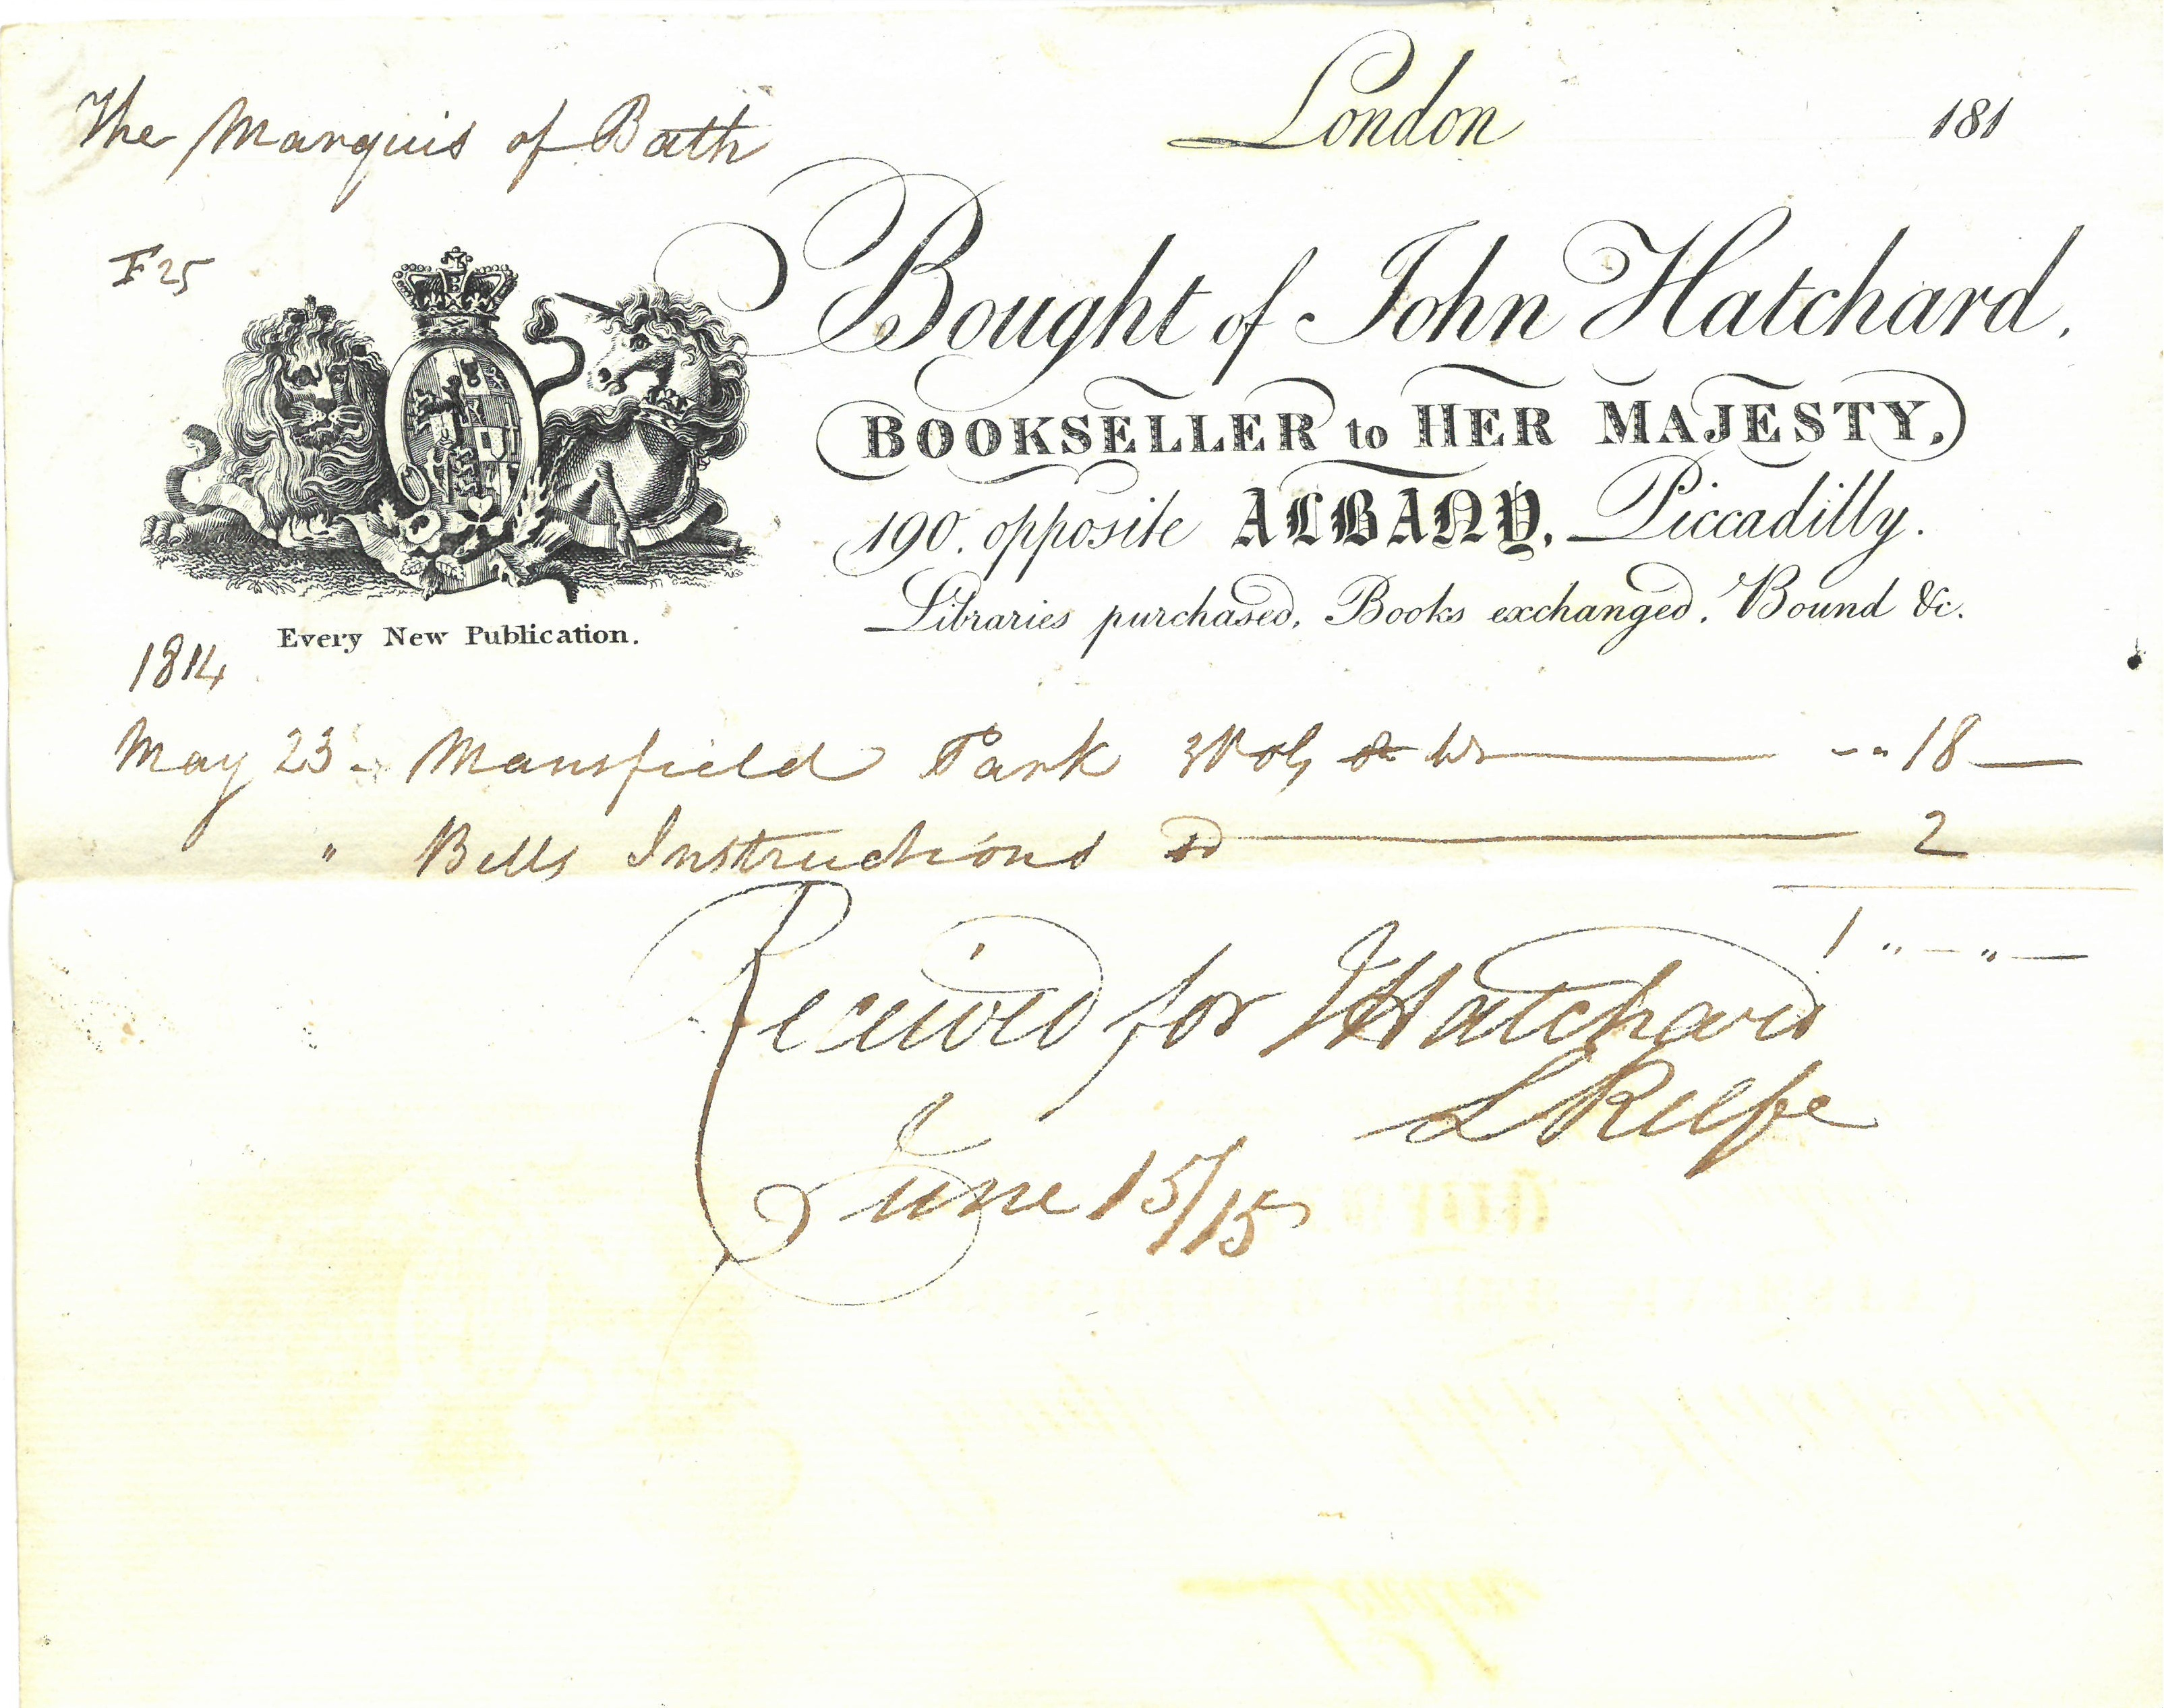 The Marquis of Bath
London 181
F 25
Bought of John Hatchard,
BOOKSELLER to HER MAJESTY,
190. opposite ALBANY, Piccadilly.
Libraries purchased, Books exchanged, Bound &c.
Every New Publication.
1814
May 23 - Mansfield Park 3 Vols 18 —
" Bells Instructions 2
1 " — " —
Received for J Hatchard
June 15/15